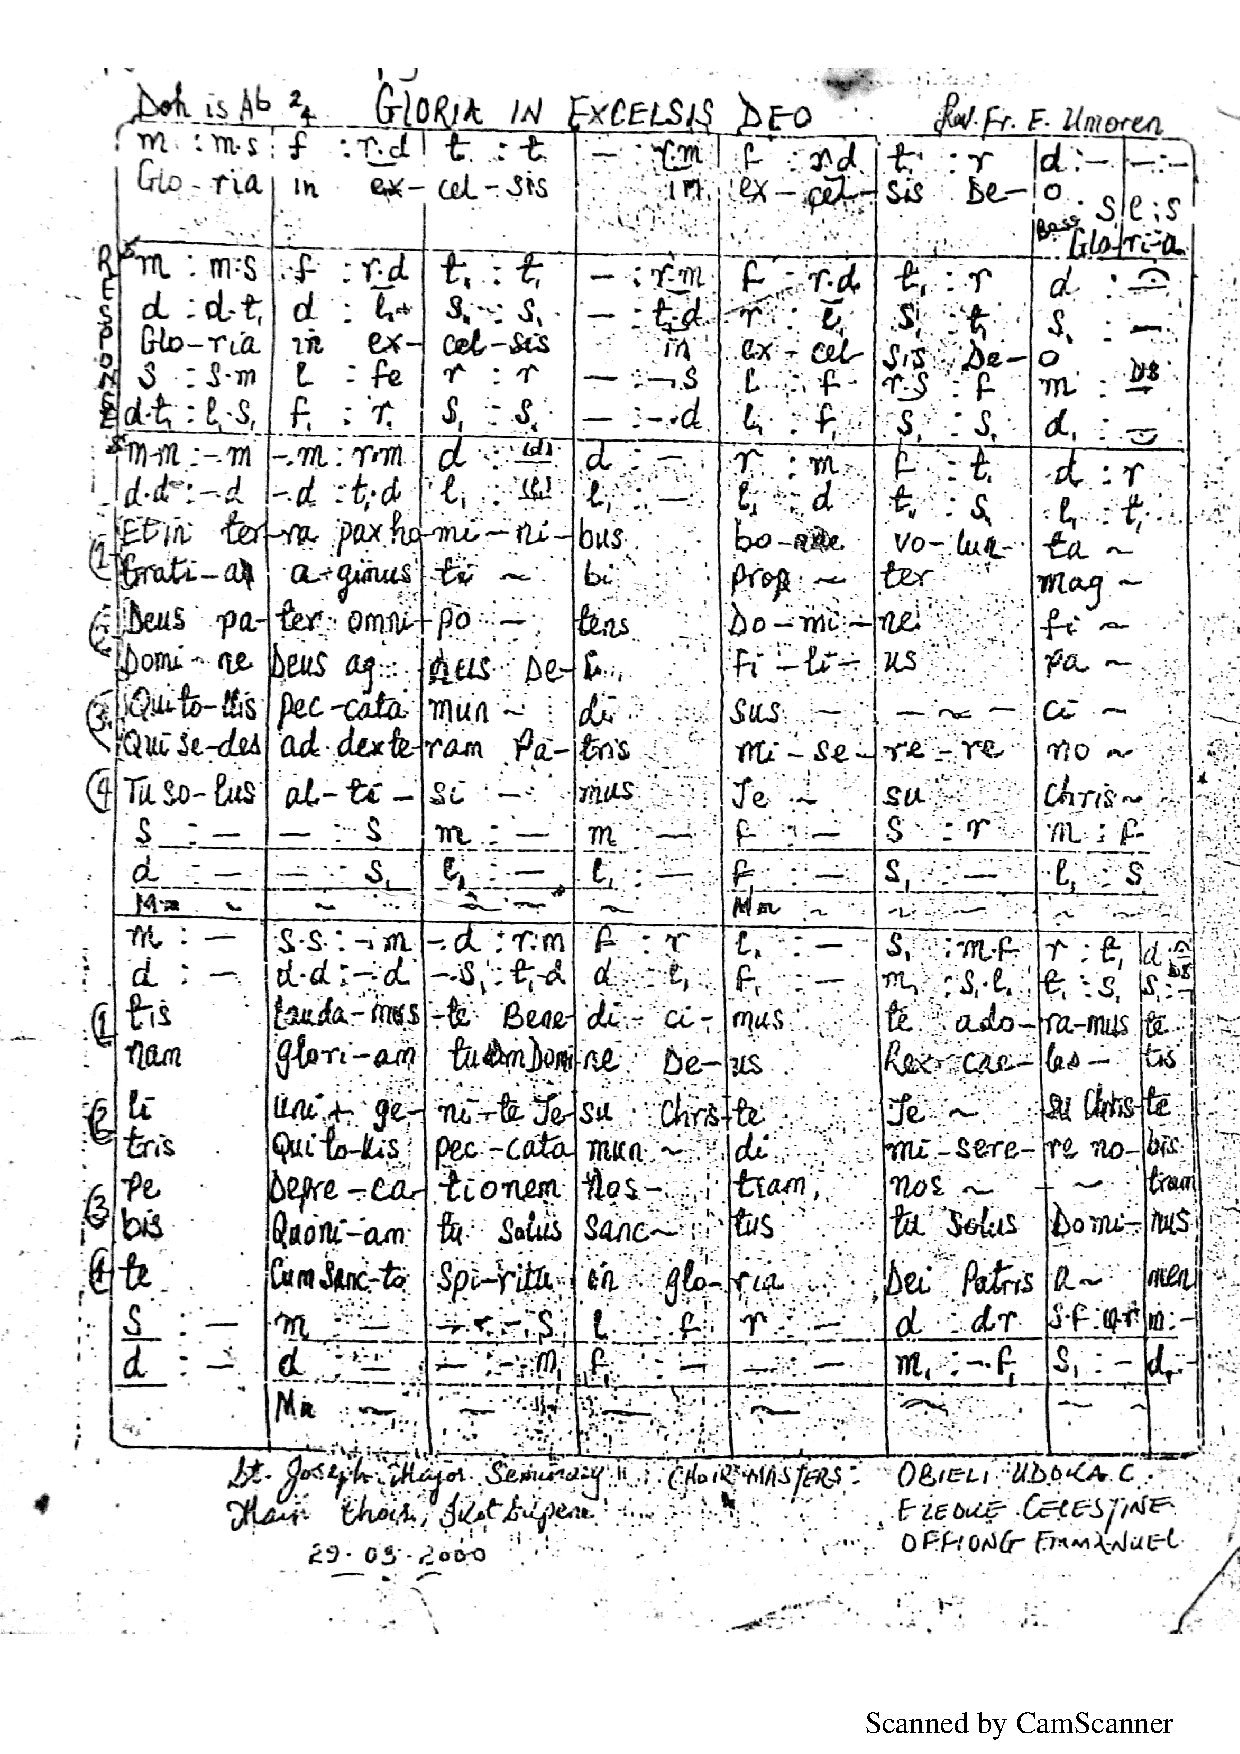 Doh is Ab 2/4 GLORIA IN EXCELSIS DEO Rev. Fr. E. Umoren
m : m.s | f : r.d | t, : t, | – : r.m | f : r.d | t, : r | d : – | – : –
Glo-ria | in ex-cel-sis in ex-cel-sis De-o
. s | l : s
Bass Glo-ri-a
RESPONSE
m : m.s | f : r.d | t, : t, | – : r.m | f : r.d | t, : r | d :
d : d.t, | d : l, | s, : s, | – : t,.d | r : l, | s, : t, | s, : –
Glo-ria in ex-cel-sis in ex-cel sis De-o
s : s.m | l : fe | r : r | – : -.s | l : f | r.s : f | m : – DS
d.t, : l,.s, | f, : r, | s, : s, | – : -.d | l, : f, | s, : s, | d, : –
m.m : -.m | -.m : r.m | d : (d) | d : – | r : m | f : t, | d : r
d.d : -.d | -.d : t,.d | l, : (l,) | l, : – | l, : d | t, : s, | l, : t,
1 Et in ter-ra pax ho-mi-ni-bus bo-nae vo-lun-ta ~
Grati-as a-gimus ti ~ bi prop ~ ter mag ~
2 Deus pa-ter omni-po - tens Do-mi-ne fi ~
Domi-ne Deus ag nus De-i fi-li-us pa ~
3 Qui to-llis pec-cata mun ~ di sus - - ~ - ci ~
Qui se-des ad dexte-ram Pa-tris mi-se-re-re no ~
4 Tu so-lus al-ti-si - mus Je ~ su Chris ~
s : – | – : s | m : – | m : – | f : – | s : r | m : f
d : – | – : s, | l, : – | l, : – | f, : – | s, : – | l, : s,
Mm ~ ~ ~ ~ ~ Mm ~ ~ - ~ ~
m : – | s.s : -.m | -.d : r.m | f : r | l, : – | s, : m.f | r : t, | d
d : – | d.d : -.d | -.s, : t,.d | d : l, | f, : – | m, : s,.l, | t, : s, | s, : – DS
1 tis Lauda-mus te Bene-di-ci-mus te ado-ra-mus te
nam glori-am tuam Domi-ne De-us Rex cae-les-tis
2 li uni-ge-ni-te Je-su Chris-te Je ~ su Chris-te
tris Qui to-llis pec-cata mun ~ di mi-sere-re no-bis
3 pe Depre-ca-tionem nos-tram, nos ~ - ~ tram
bis Quoni-am tu solus sanc ~ tus tu solus Domi-nus
4 te Cum Sanc-to Spi-ritu in glo-ria Dei Patris a ~ men
s : – | m : – | – : -.s | l : f | r : – | d : d r | s.f : m.r | m : –
d : – | d : – | – : -.m, | f, : – | – : – | m, : -.f, | s, : – | d, : –
Mm ~ ~ ~ ~ ~ ~ ~
St. Joseph Major Seminary CHOIR MASTERS: OBIELI UDOKA C.
Main Choir, Ikot Ekpene EZEOKE CELESTINE
29.03.2000 OFFIONG EMMANUEL
Scanned by CamScanner